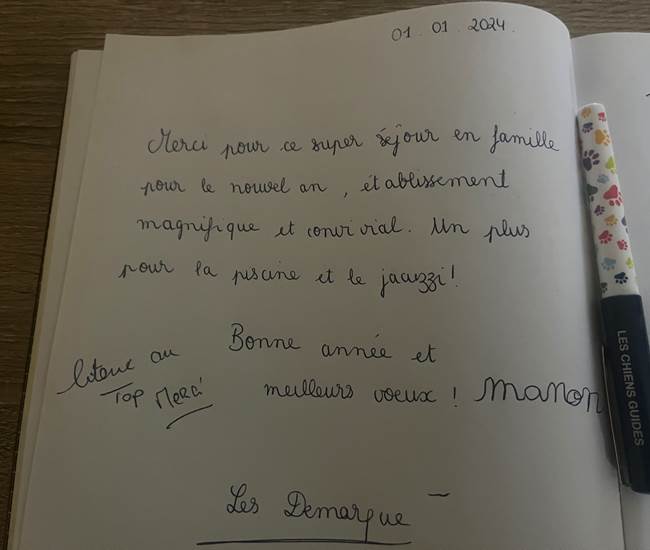 01 01 2024.
Merci pour ce super séjour en famille
pour le nouvel an, établissement
magnifique et convivial. Un plus
pour la piscine et le jacuzzi!
Bonne année et
meilleurs voeux ! Manon
au
Top Merci
Les Demarque
LES CHIENS GUIDES